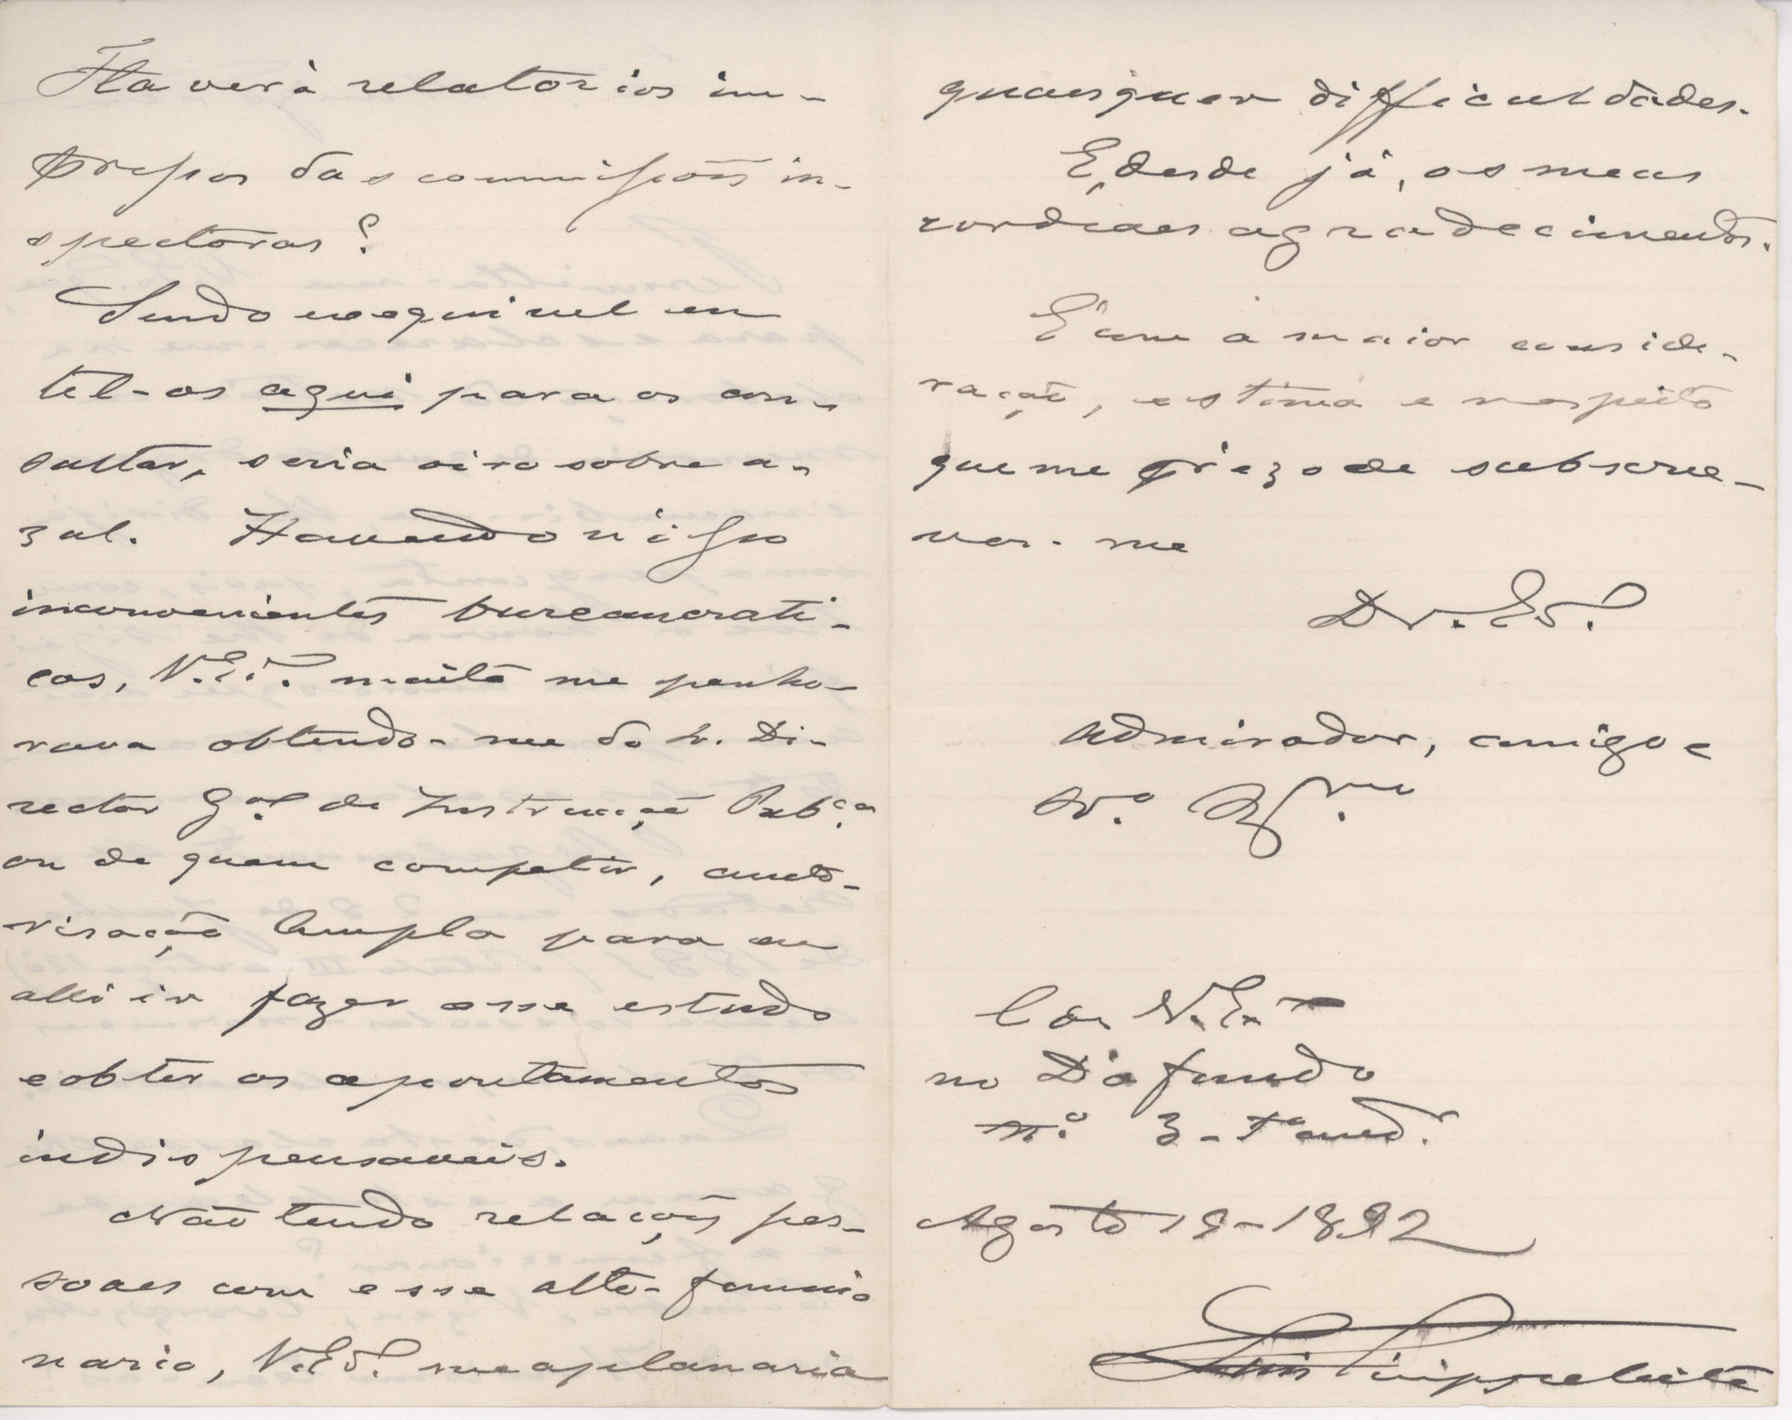 Haverá relatorios im-
pressos das commissões in-
spectoras?
Sendo exequivel eu
tel-os aqui para os con-
sultar, seria oiro sobre a-
zul. Havendo nisso
inconvenientes bureaucrati-
cos, V. Ex.ª muito me penho-
rava obtendo-me do Sr. Di-
rector G.al da Instrucção Pub.ca
ou de quem competir, auto-
risação ampla para eu
alli ir fazer esse estudo
e obter os apontamentos
indispensaveis.
Não tendo relações pes-
soaes com esse alto-funccio
nario, V. Ex.ª me aplanaria
quaesquer difficuldades.
E, desde já, os meus
cordeaes agradecimentos.
É com a maior conside-
ração, estima e respeito
que me prezo de subscre-
ver-me
De V. Ex.ª
Admirador, amigo e
C. de V. Ex.ª
no Dáfundo
n.º 3 - 1.º and.r
Agosto 19-1892